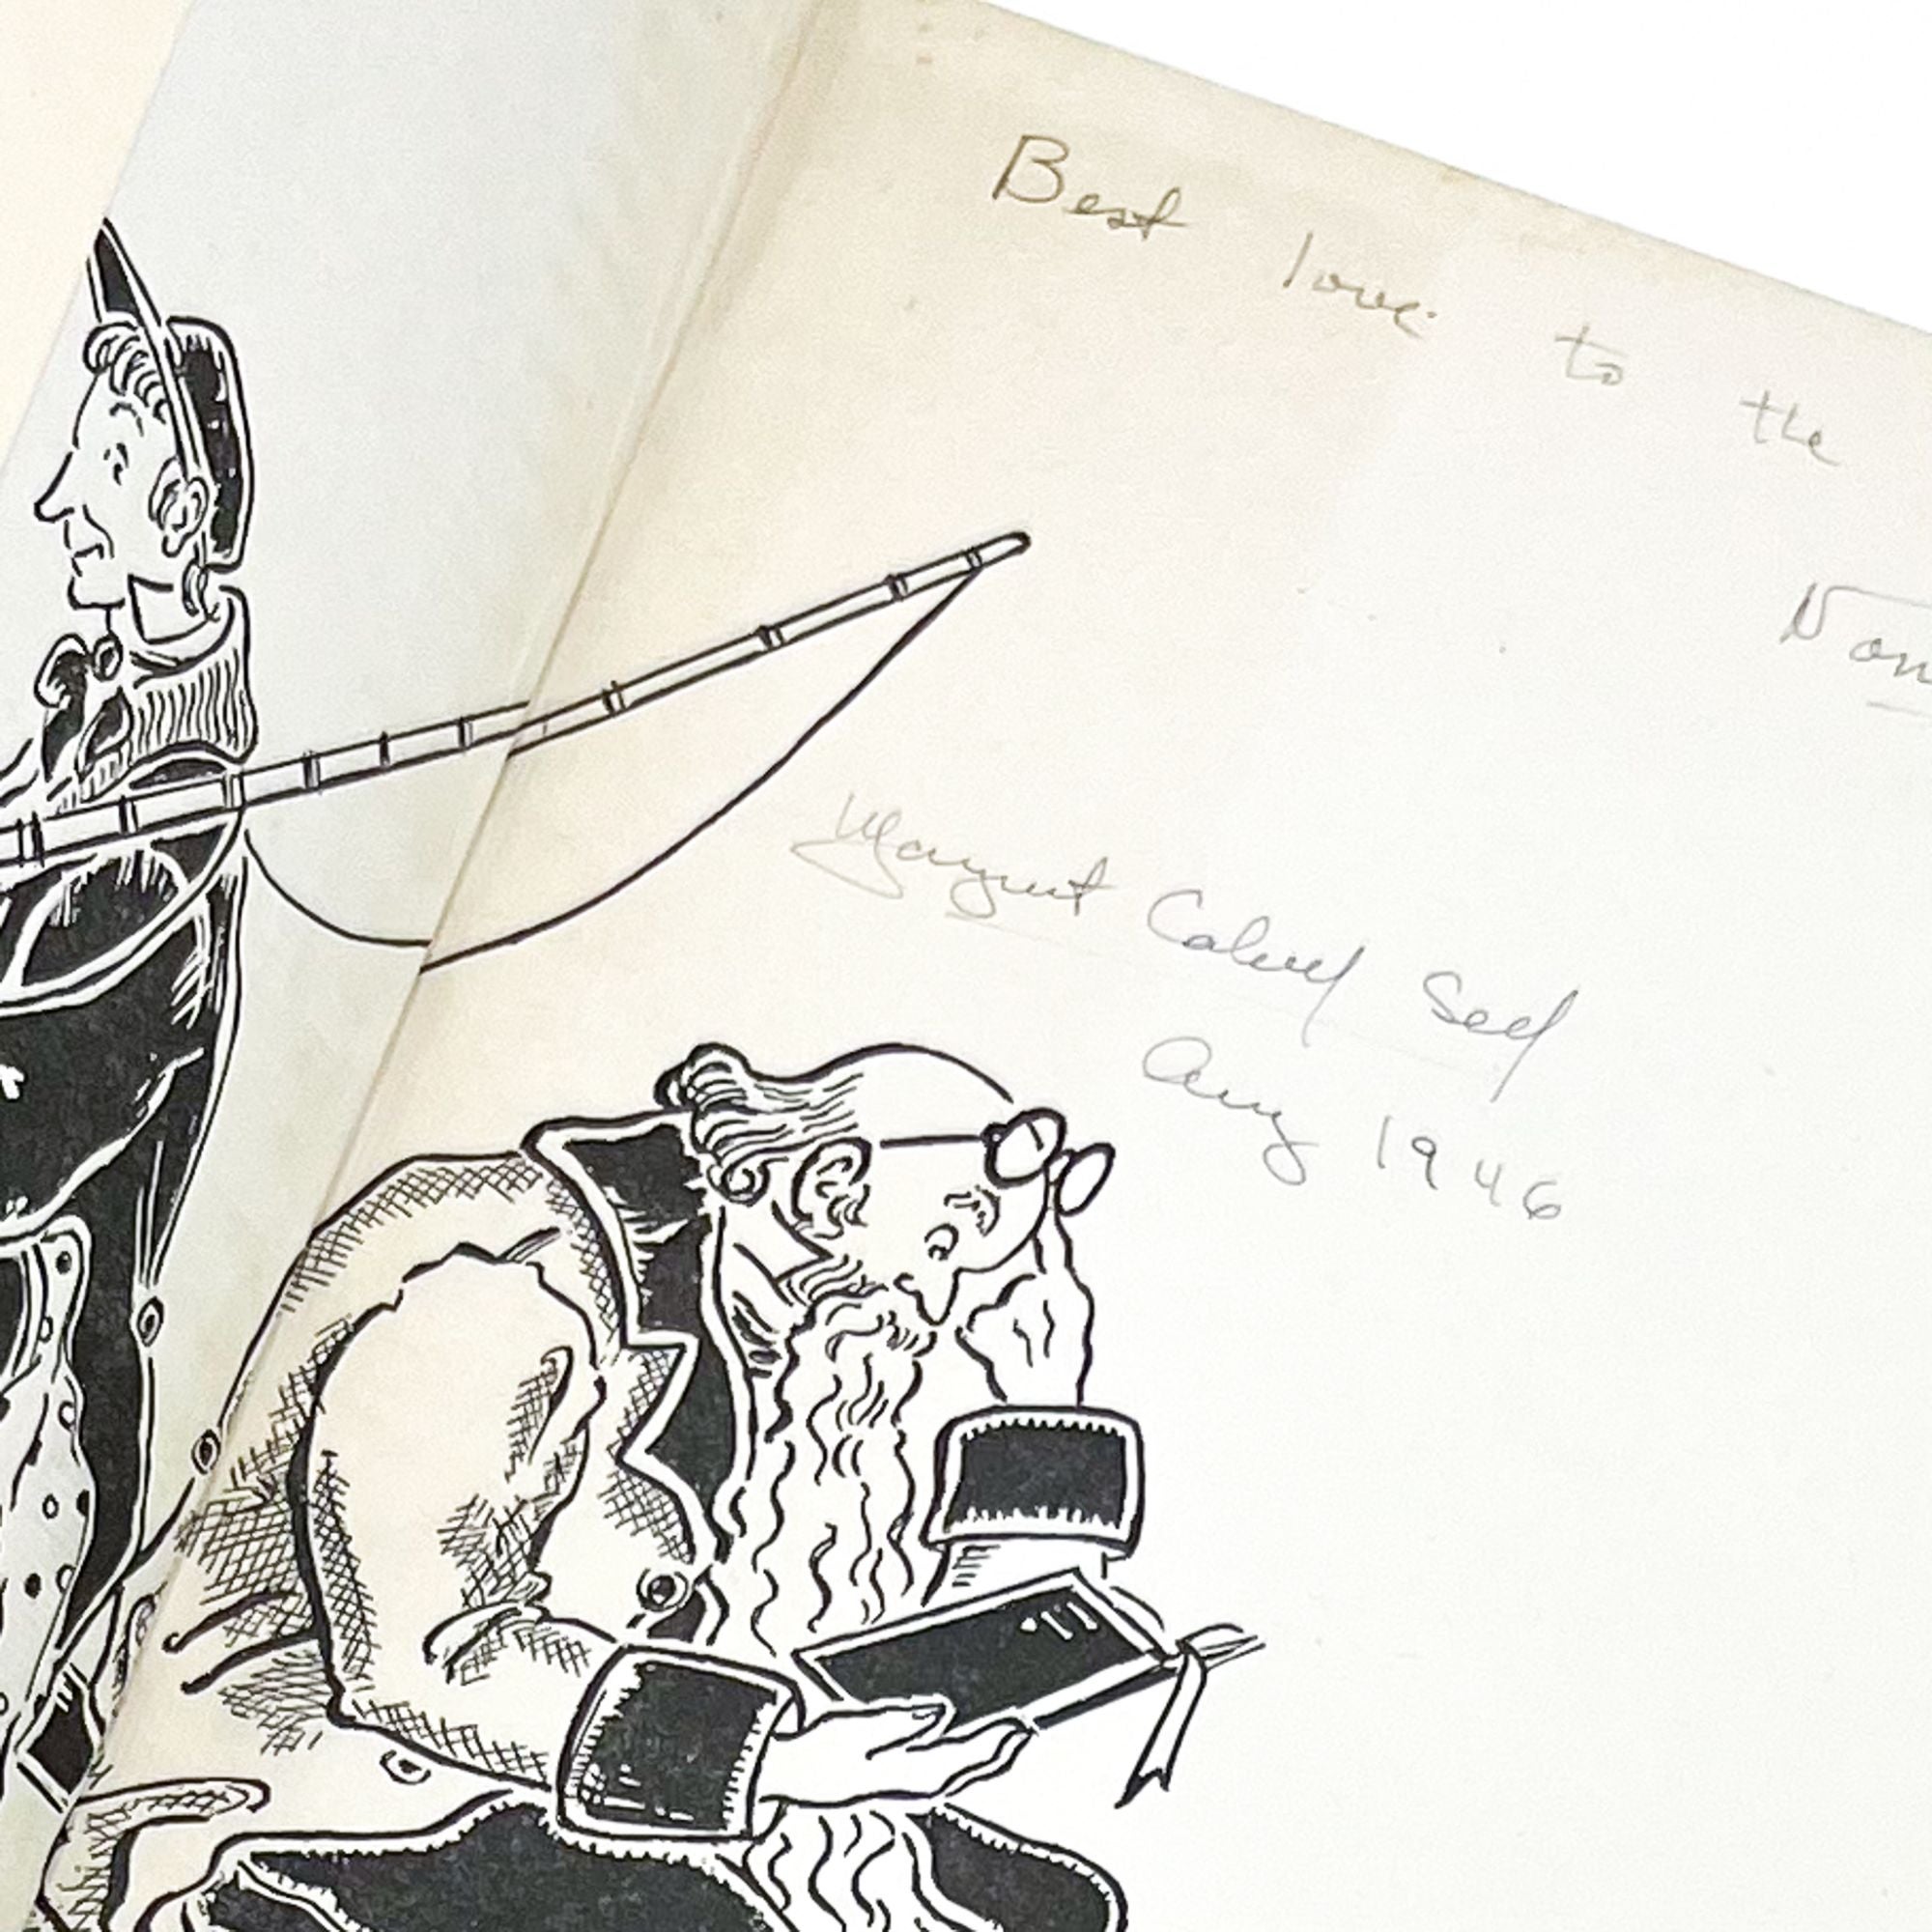 Best love to the
Margaret Calvert
Aug 1946